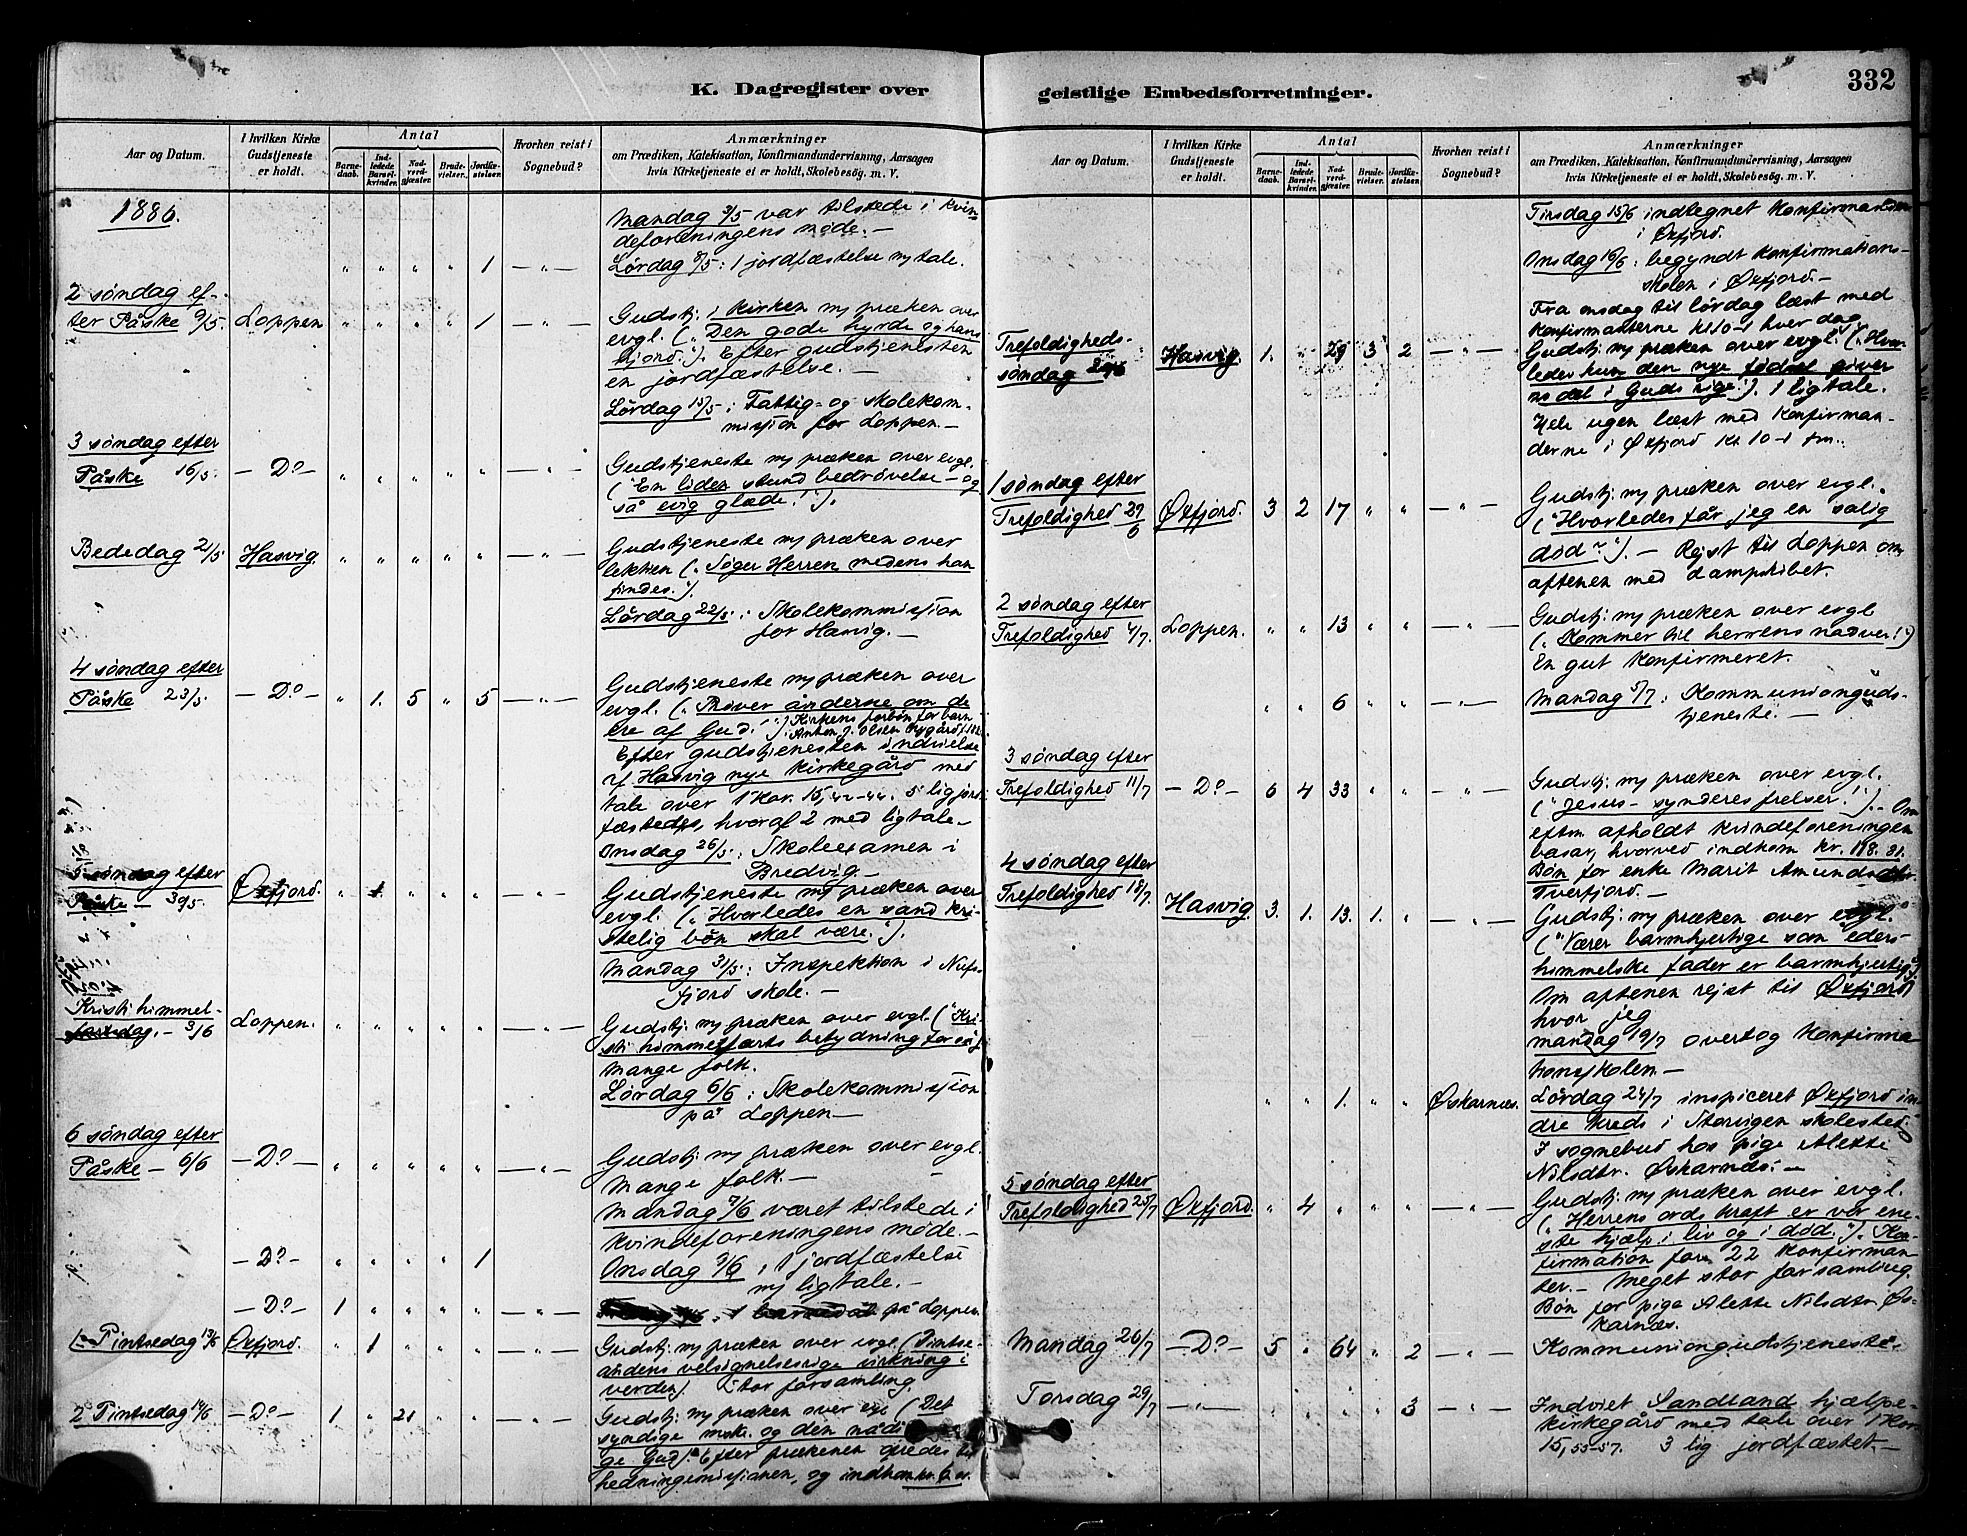 K. Dagregister over
Aar og Datum.
I hvilken Kirke Gudstjeneste er holdt.
Antal
Barne-daab.
Ind-ledede Barsel-kvinder.
Nad-verd-gjæster.
Brude-vielser.
Jordfæ-stelser.
Hvorhen reist i Sognebud?
Anmærkninger
om Prædiken, Katekisation, Konfirmandundervisning, Aarsagen
hvis Kirketjeneste ei er holdt, Skolebesøg. m. V.
1886.
Mandag 3/5 var tilstede i kvin-
deforeningens møde. —
" " " " 1 — " — Lørdag 8/5: 1 jordfæstelse m/ tale.
2 søndag ef-
ter Påske 9/5 Loppen " " " " 1 — " — Gudstj. i kirken m/ præken over
evgl. („Den gode hyrde og hans
hjord."). Efter gudstjenesten
en jordfæstelse. —
Lørdag 15/5: Fattig- og skolekom-
misjon for Loppen. —
3 søndag efter
Påske 16/5. — Do — " " " " " — " — Gudstjeneste m/ præken over evgl.
("En liden stund bedrøvelse — og
så evig glæde!").
Bededag 21/5 Hasvig. " " " " " — " — Gudstjeneste m/ præken over
lektien („Søger Herren medens han
findes.").
Lørdag 22/5: Skolekommisjion
for Hasvig. —
4 søndag efter
Påske 23/5. — Do — " 1. 5 " 5 — " — Gudstjeneste m/ præken over
evgl. („Prøver ånderne om de
ere af Gud!"). Kirkens forbøn for barn
Anton J. Olsen
Efter gudstjenesten indvielse
af Hasvig nye kirkegård med
tale over 1 Kor. 15,42-44. 5 lig jord-
fæstedes, hvoraf 2 med ligtale. —
Onsdag 26/5: Skoleexamen i
Bredvig. —
5 søndag efter
Påske — 30/5. Øxfjord. " 1 " " " — " — Gudstjeneste m/ præken over
evgl. („Hvorledes en sand kri-
stelig bøn skal være.").
Mandag 31/5: Inspektion i Nufs-
fjord skole. —
Kristi himmel-
fartsdag. — 3/6 Loppen. " " " " " — " — Gudstj. m/ præken over evgl. ("Kri-
sti himmelfarts betydning for os")
Mange folk.
Lørdag 5/6: Skolekommisjion
på Loppen —
6 søndag efter
Påske — 6/6 — Do — " " " " " — " — Gudstj. m/ præken over evgl.
Mange folk. —
Mandag 7/6 været tilstede i
kvindeforeningens møde. —
— Do — " " " " 1 Onsdag 9/6, 1 jordfæstelse
m/ ligtale. —
— Do — 1 " " " " — " — 1 barnedåb på Loppen.
1ste Pintsedag 13/6 Øxfjord. " 1 " " " — " — Gudstj. m/ præken over evgl. (Pintse-
åndens velsignelsesrige virkning i
verden). Stor forsamling.
2 Pintsedag 14/6 — Do — 1 " 21 " " — " — Gudstj. m/ præken over evgl (Det
syndige mske. og den nådi-
ge Gud). Efter prækenen
hedningemisjionen, og indkom kr. 6
geistlige Embedsforretninger.
332
Aar og Datum.
I hvilken Kirke Gudstjeneste er holdt.
Antal
Barne-daab.
Ind-ledede Barsel-kvinder.
Nad-verd-gjæster.
Brude-vielser.
Jordfæ-stelser.
Hvorhen reist i Sognebud?
Anmærkninger
om Prædiken, Katekisation, Konfirmandundervisning, Aarsagen
hvis Kirketjeneste ei er holdt, Skolebesøg. m. V.
Tirsdag 15/6 indtegnet Konfirmanderne
i Øxfjord.
Onsdag 16/6: begyndt Konfirmations-
skolen i Øxfjord. —
Fra onsdag til lørdag læst med
Konfirmanterne kl 10-1 hver dag.
Trefoldigheds-
søndag 20/6 Hasvig. 1. " 29 3 2 — " — Gudstj. m/ præken over evgl. („Hvor-
ledes kun den nye fødsel giver
os del i Guds rige!"). 1 ligtale.
Hele ugen læst med Konfirman-
derne i Øxfjord Kl. 10-1 fm..
1 søndag efter
Trefoldighed 27/6 Øxfjord. 3 2 17 " " — " — Gudstj. m/ præken over evgl.
("Hvorledes får jeg en salig
død?"). — Rejst til Loppen om
aftenen med dampskibet.
2 søndag efter
Trefoldighed 4/7. Loppen. " " 13 " " — " — Gudstj. m/ præken over evgl
(„Kommer til herrens nadver!")
En gut konfirmeret.
" " 6 " " — " — Mandag 5/7: Kommunionguds-
tjeneste. —
3 søndag efter
Trefoldighed 11/7 — Do — 6 4 33 " " — " — Gudstj. m/ præken over evgl.
("Jesus — synderes frelser!"). — Om
eftm. afholdt kvindeforeningen
basar, hvorved indkom kr. 118.31.
Bøn for enke Marit Amundsdtr
Tverfjord. —
4 søndag efter
Trefoldighed 18/7. Hasvig 3. 1. 13. 1. " — " — Gudstj. m/ præken over evgl.
("Værer barmhjertige som eders
himmelske fader er barmhjertig").
Om aftenen rejst til Øxfjord,
hvor jeg
mandag 19/7 overtog Konfirma-
tionsskolen. —
" " 1. " " Øskarnæs. Lørdag 24/7 inspiceret Øxfjord in-
dre kreds i Storvigen skolested.
I sognebud hos pige Alette
Nilsdtr. Øskarnæs. —
5 søndag efter
Trefoldighed 25/7 Øxfjord. " 4 " " " — " — Gudstj. m/ præken over evgl.
(„Herrens ords kraft er vor ene-
ste hjælp i liv og i død."). Kon-
firmation for 22 konfirman-
ter. — Meget stor forsamling.
Bøn for pige Alette Nilsdtr. Øs-
karnæs.
Mandag 26/7 — Do — 5 " 64 " 2 — " — Kommuniongudstjeneste.
Torsdag 29/7 — " — " " " " 3 — " — Indviet Sandland hjælpe-
kirkegård med tale over 1 Kor
15,55-57. 3 lig jordfæstet. —